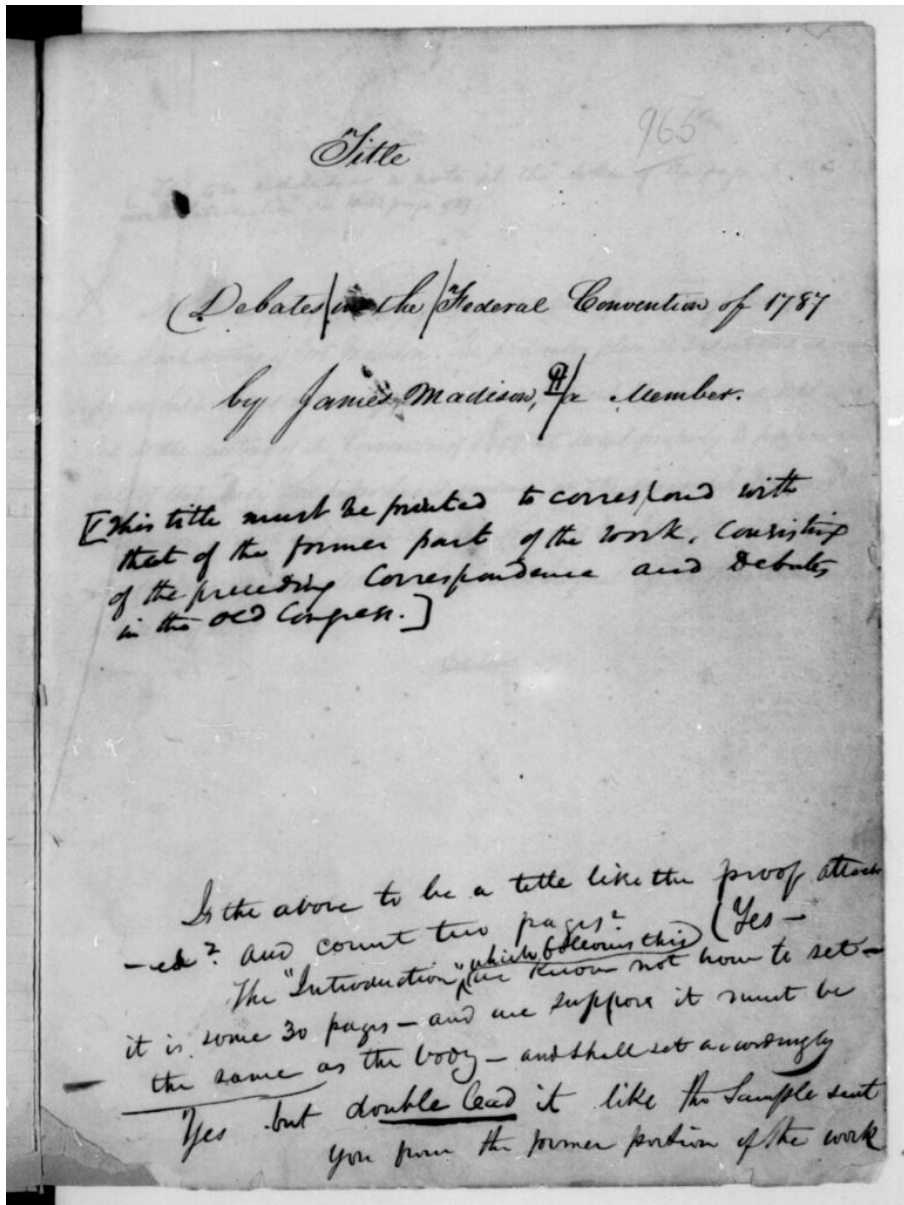 965
Title
Debates in the Federal Convention of 1787
by James Madison, a Member.
[This title must be printed to correspond with
that of the former part of the work, consisting
of the preceding Correspondence and Debates
in the old Congress.]
Is the above to be a title like the proof attach
-ed? and count two pages? (Yes —
The "Introduction", which follows this, we know not how to set —
it is some 30 pages — and we suppose it must be
the same as the body — and shall set accordingly
Yes but double lead it like the Sample sent
you from the former portion of the work